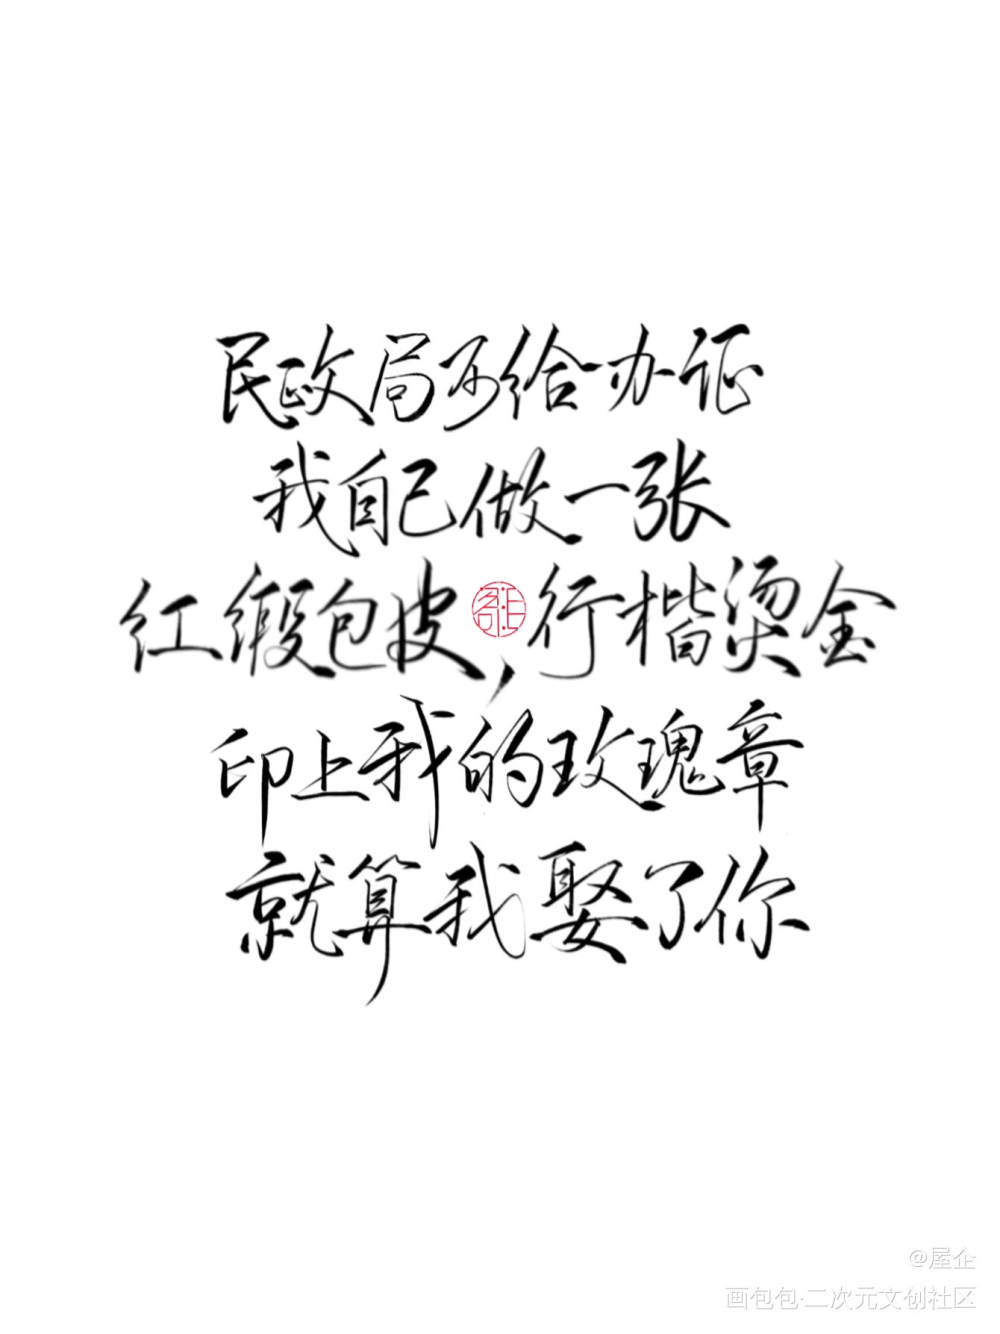 民政局不给办证
我自己做一张
红缎包皮,行楷烫金
印上我的玫瑰章
就算我娶了你
@屋企
画包包·二次元文创社区